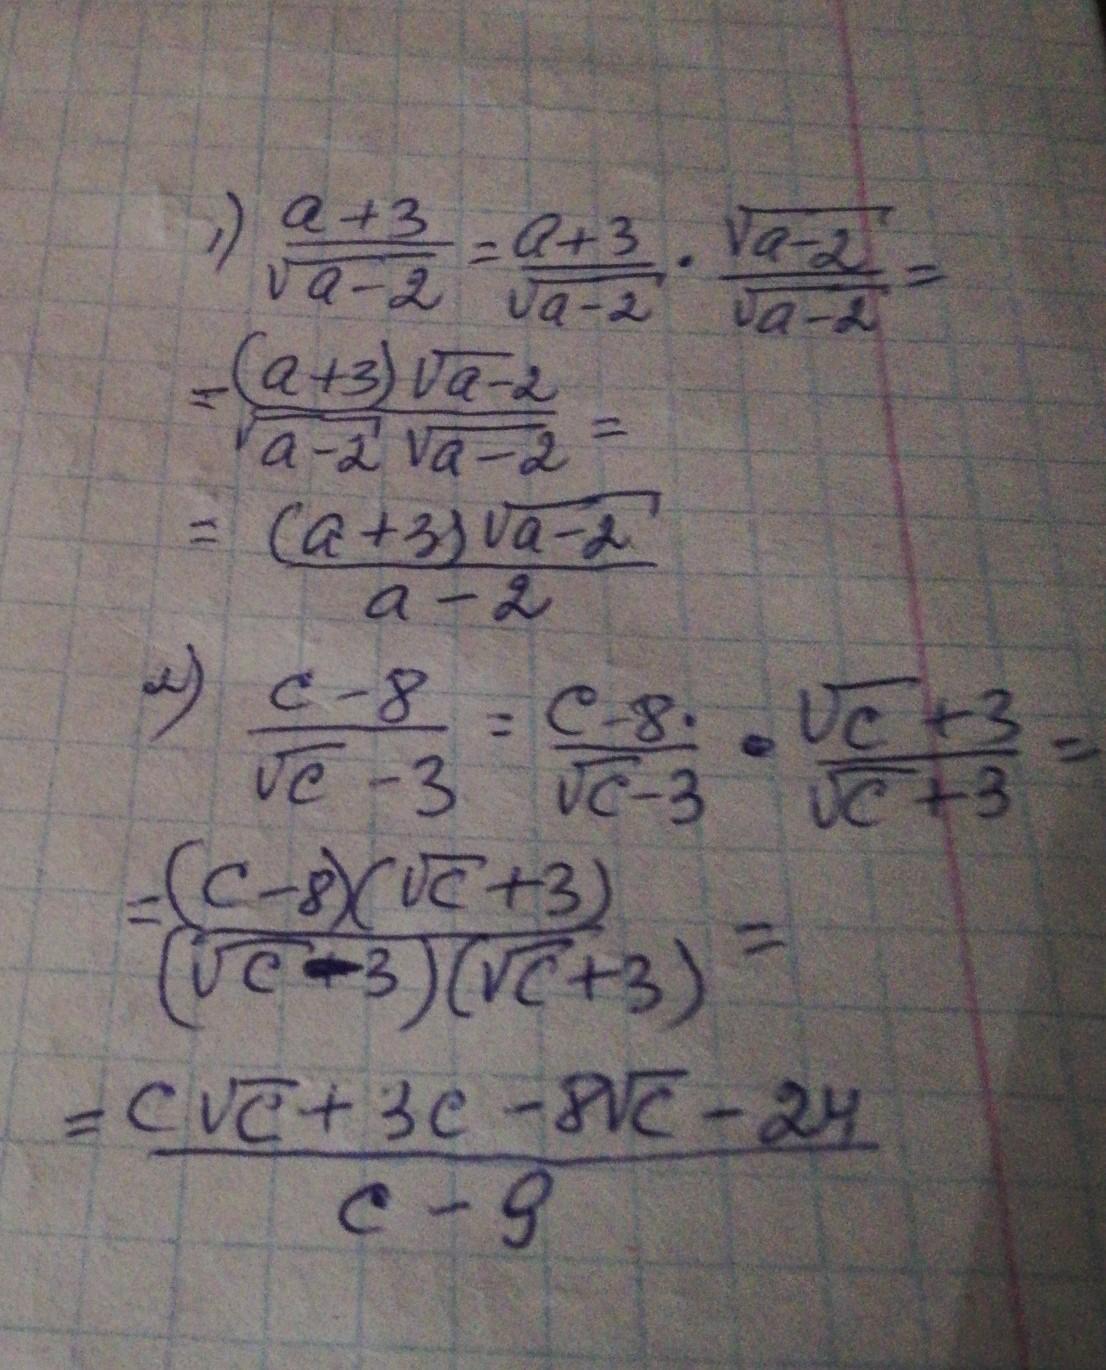 1) (a+3)/√(a-2) = (a+3)/√(a-2) · √(a-2)/√(a-2) =
= (a+3)√(a-2) / √(a-2) √(a-2) =
= (a+3)√(a-2) / a-2
2) (c-8)/(√c -3) = (c-8·)/(√c-3) · (√c+3)/(√c+3) =
= (c-8)(√c+3) / (√c-3)(√c+3) =
= c√c + 3c - 8√c - 24 / c-9